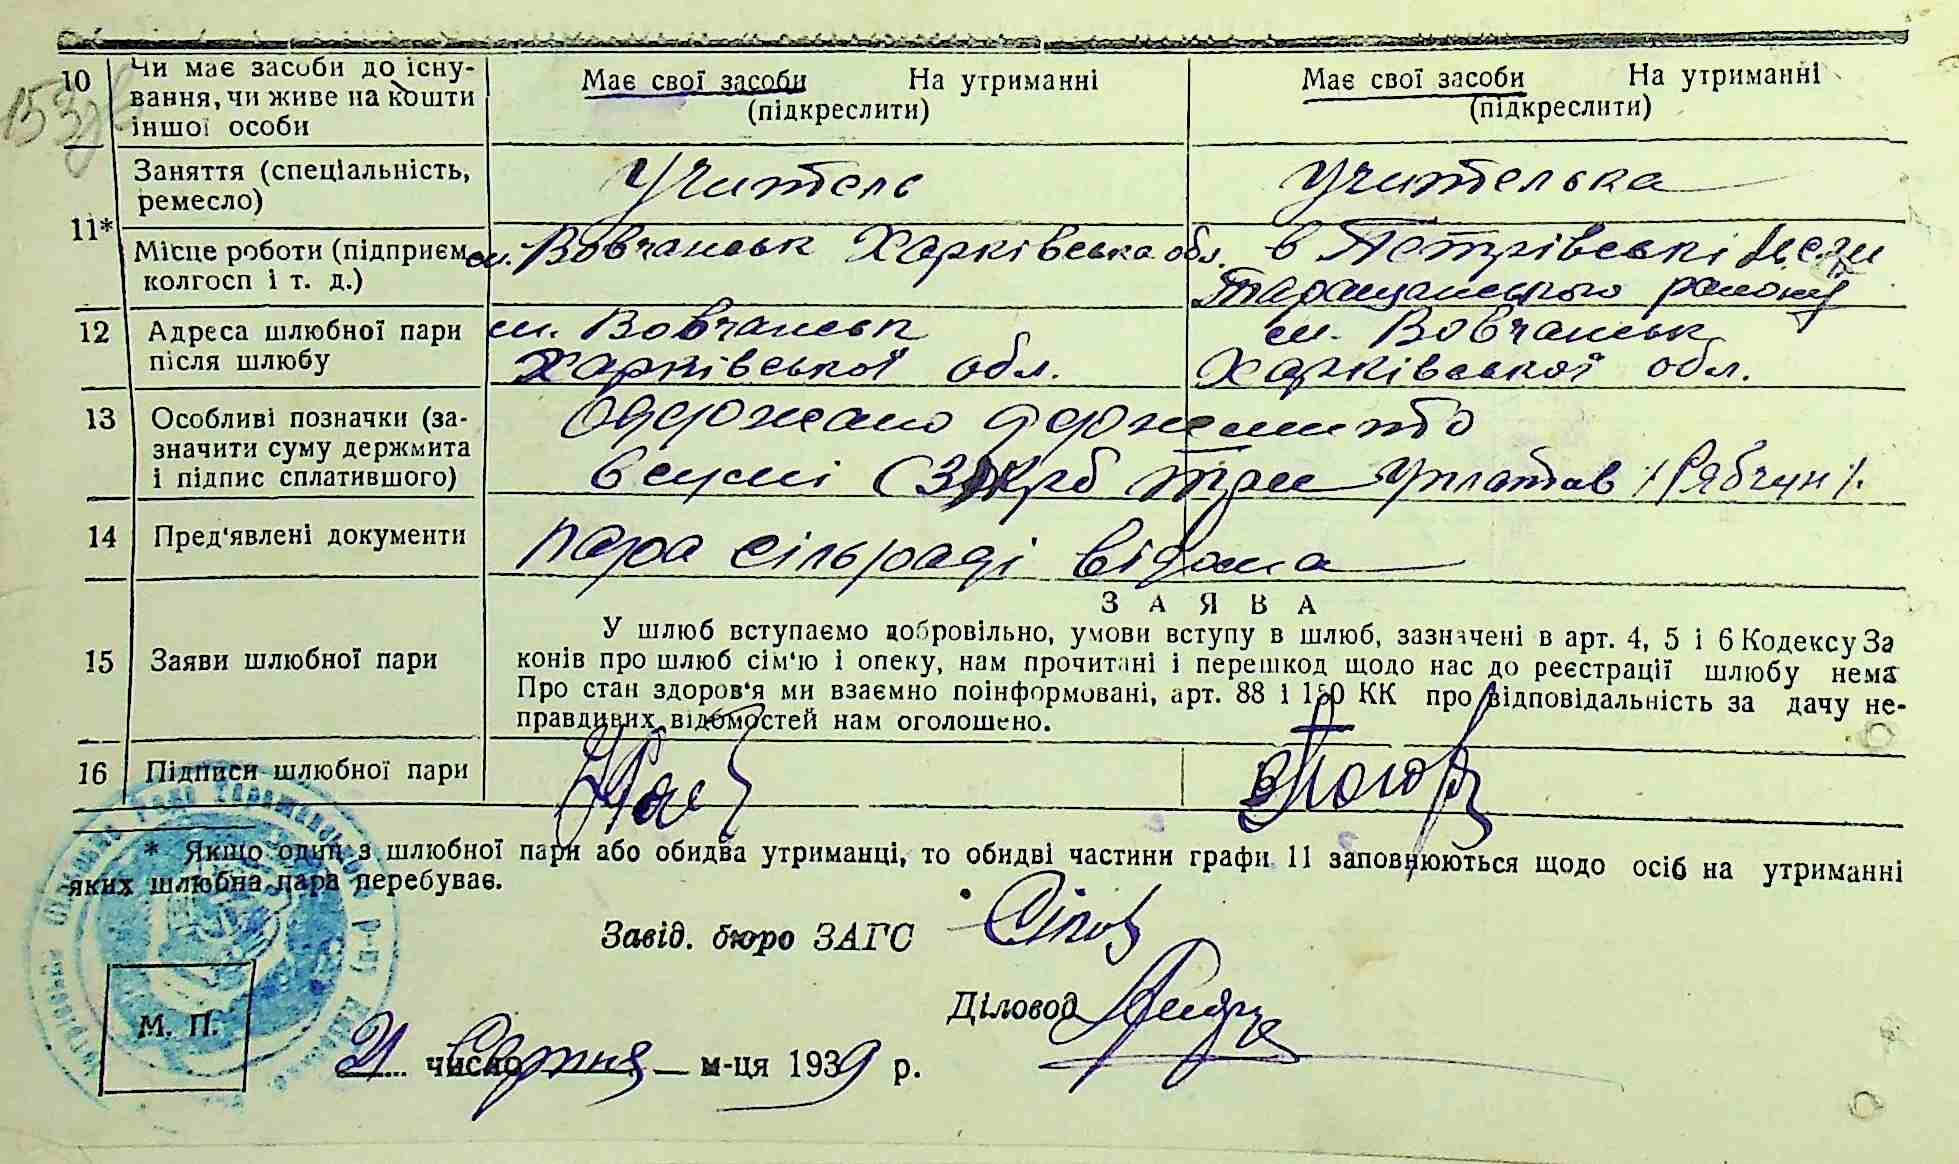 10 Чи має засоби до існу- Має свої засоби На утриманні Має свої засоби На утриманні
вання, чи живе на кошти (підкреслити) (підкреслити)
іншої особи
Заняття (спеціальність, Учитель Учителька
ремесло)
11*
Місце роботи (підприєм. м. Вовчанськ Харківська обл. в Петрівські
колгосп і т. д.) Таращанського району
12 Адреса шлюбної пари м. Вовчанськ м. Вовчанськ
після шлюбу Харківської обл. Харківської обл.
13 Особливі позначки (за- Одержано держмито
значити суму держмита в сумі (3 крб три уплатив /Рябчун/.
і підпис сплатившого)
14 Пред'явлені документи пара сільраді відома
З А Я В А
15 Заяви шлюбної пари
У шлюб вступаємо добровільно, умови вступу в шлюб, зазначені в арт. 4, 5 і 6 Кодексу За
конів про шлюб сім'ю і опеку, нам прочитані і перешкод щодо нас до реєстрації шлюбу нема
Про стан здоров'я ми взаємно поінформовані, арт. 88 і 150 КК про відповідальність за дачу не-
правдивих відомостей нам оголошено.
16 Підписи шлюбної пари
* Якщо один з шлюбної пари або обидва утриманці, то обидві частини графи 11 заповнюються щодо осіб на утриманні
яких шлюбна пара перебуває.
Завід. бюро ЗАГС
Діловод
М. П.
21 число Серпня м-ця 1939 р.